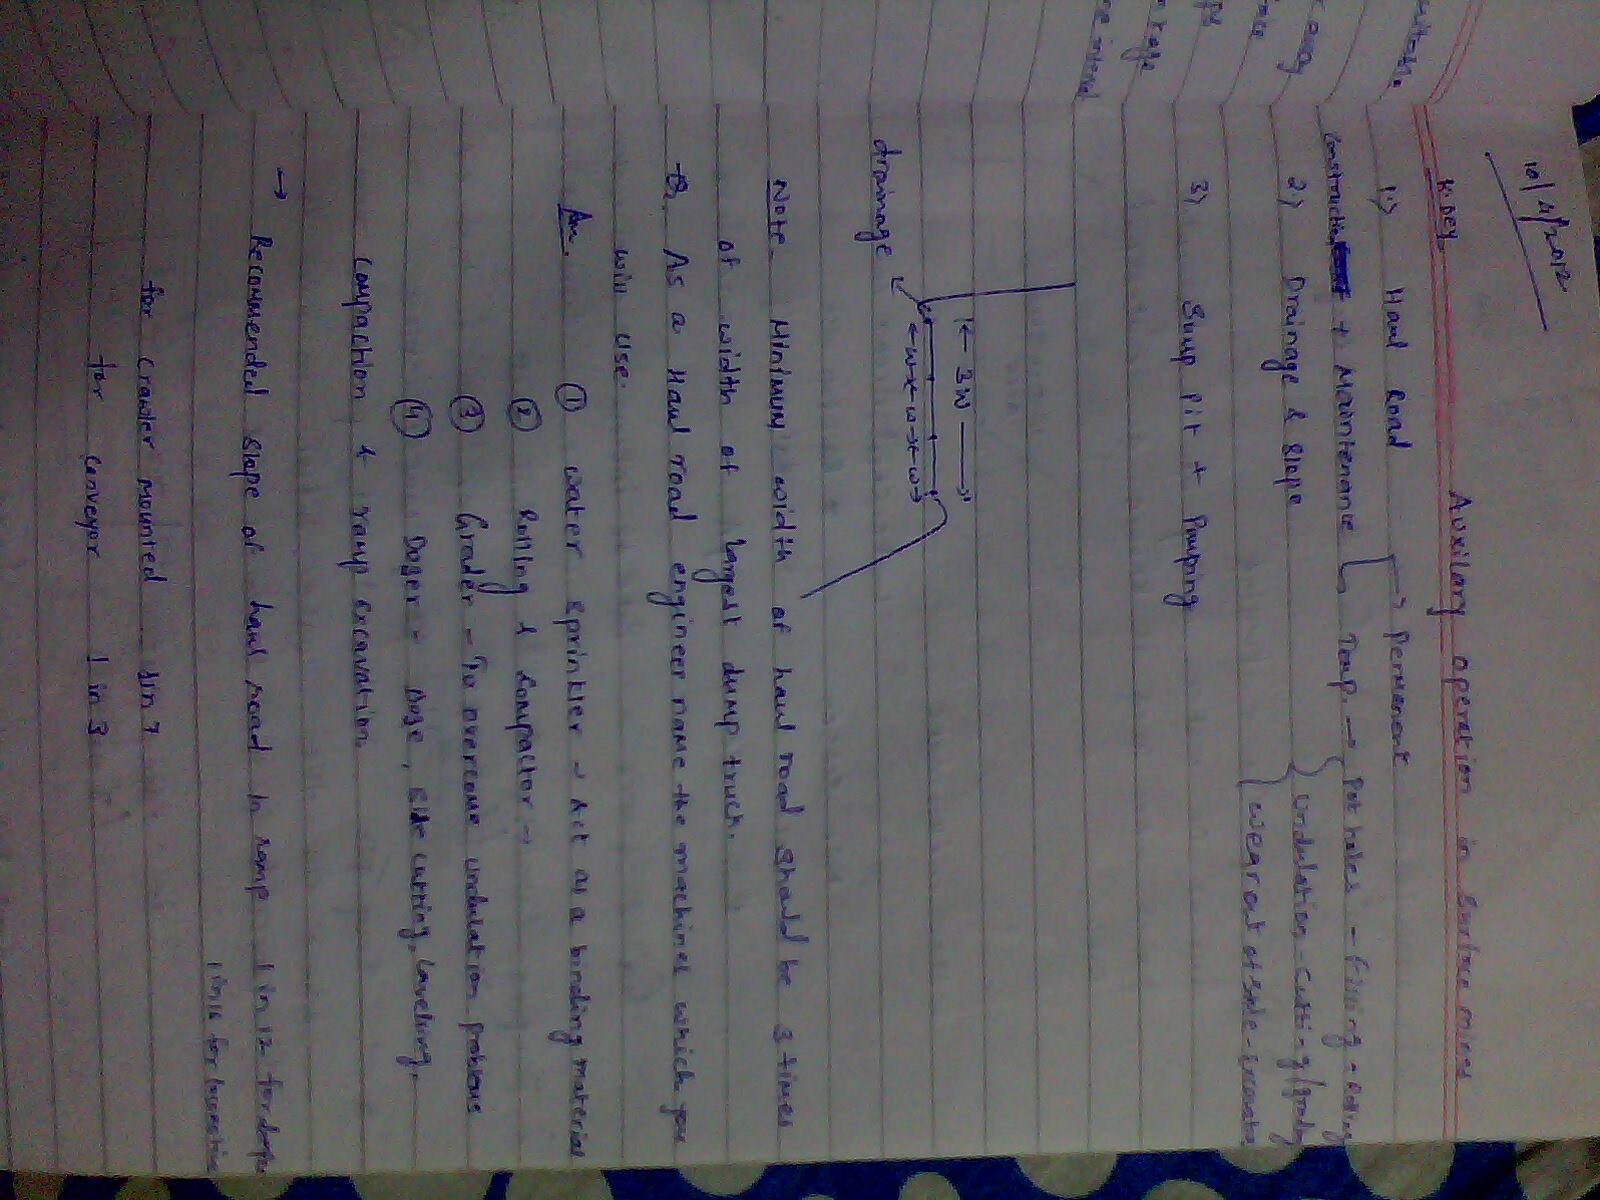 10/4/2012
K. Dey
Auxilary operation in Surface mines
1) Haul Road → Permanent
Construction + Maintenance Temp. → Pot holes - filling -
2) Drainage & Slope Undulation - Cutting/grading
wear out of side -
3) Sump pit + Pumping
|← 3W →|
←w→←w→←w→
drainage
Note. Minimum width of haul road should be 3 times
of width of largest dump truck.
Q. As a Haul road engineer name the machines which you
will use.
Ans. ① water sprinkler → Act as a binding material
② Rolling & Compactor →
③ Grader - To overcome undulation problems
④ Dozer - Doze, side cutting, Laveling,
Compaction & ramp excavation.
→ Recommended slope of haul road in ramp 1 in 12 for
1 in 16 for
for crawler mounted 1 in 7
for conveyor 1 in 3